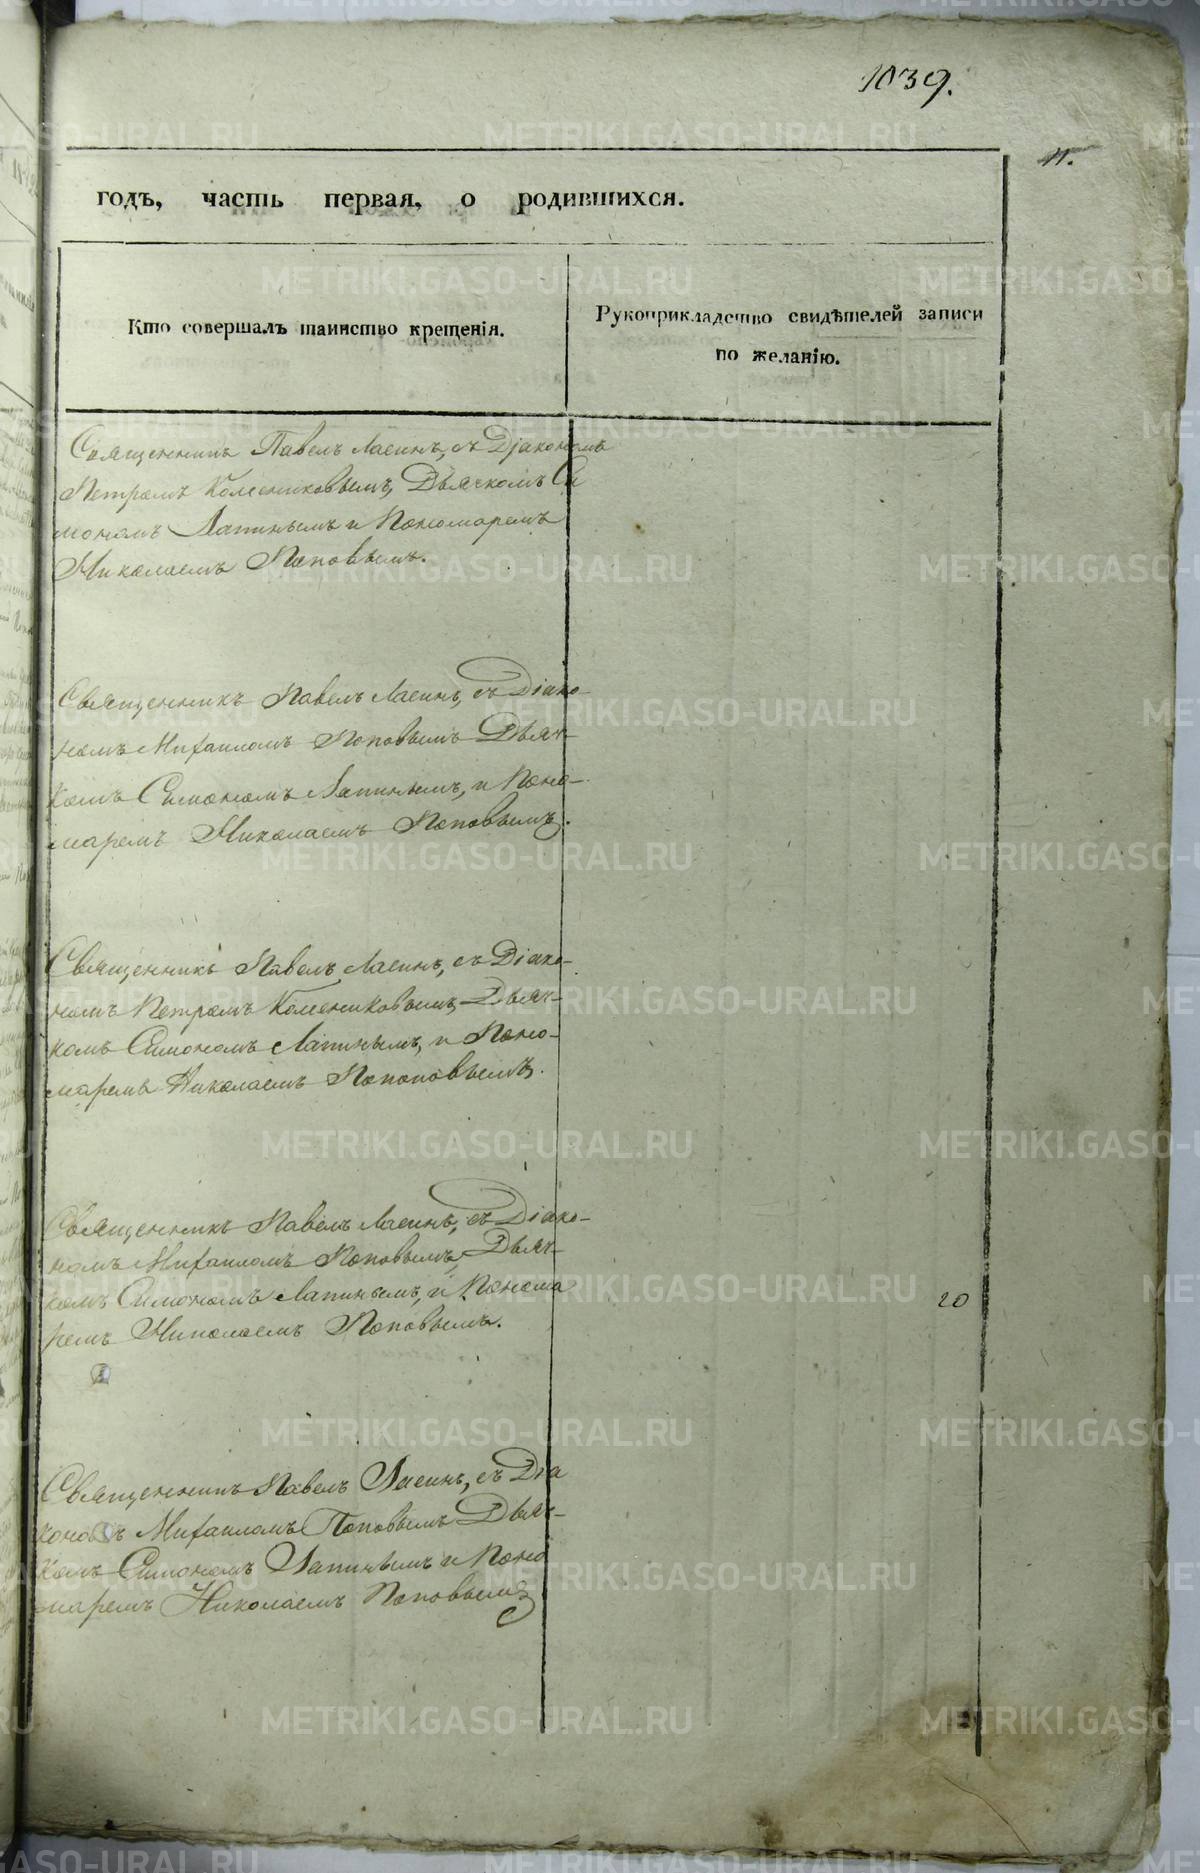 1039.
11.
годъ, часть первая, о родившихся.
Кто совершалъ таинство крещенія.
Рукоприкладство свидѣтелей записи
по желанію.
Священникъ Павелъ Ласинъ, съ Діакономъ
Петромъ Колесниковымъ, Дьячкомъ Си
мономъ Лапинымъ и Пономаремъ
Николаемъ Поповымъ.
Священникъ Павелъ Ласинъ, съ Діако-
номъ Михаиломъ Поповымъ Дьяч-
комъ Симономъ Лапинымъ, и Поно-
маремъ Николаемъ Поповымъ.
Священникъ Павелъ Ласинъ, съ Діако-
номъ Петромъ Колесниковымъ, Дьяч-
комъ Симономъ Лапинымъ, и Поно-
маремъ Николаемъ Попоповымъ.
Священникъ Павелъ Ласинъ, съ Діако-
номъ Михаиломъ Поповымъ, Дьяч-
комъ Симономъ Лапинымъ, и Понома
ремъ Николаемъ Поповымъ.
20
Священникъ Павелъ Ласинъ, съ Діа
кономъ Михаиломъ Поповымъ Дьяч-
комъ Симономъ Лапинымъ и Поно
маремъ Николаемъ Поповымъ
METRIKI.GASO-URAL.RU